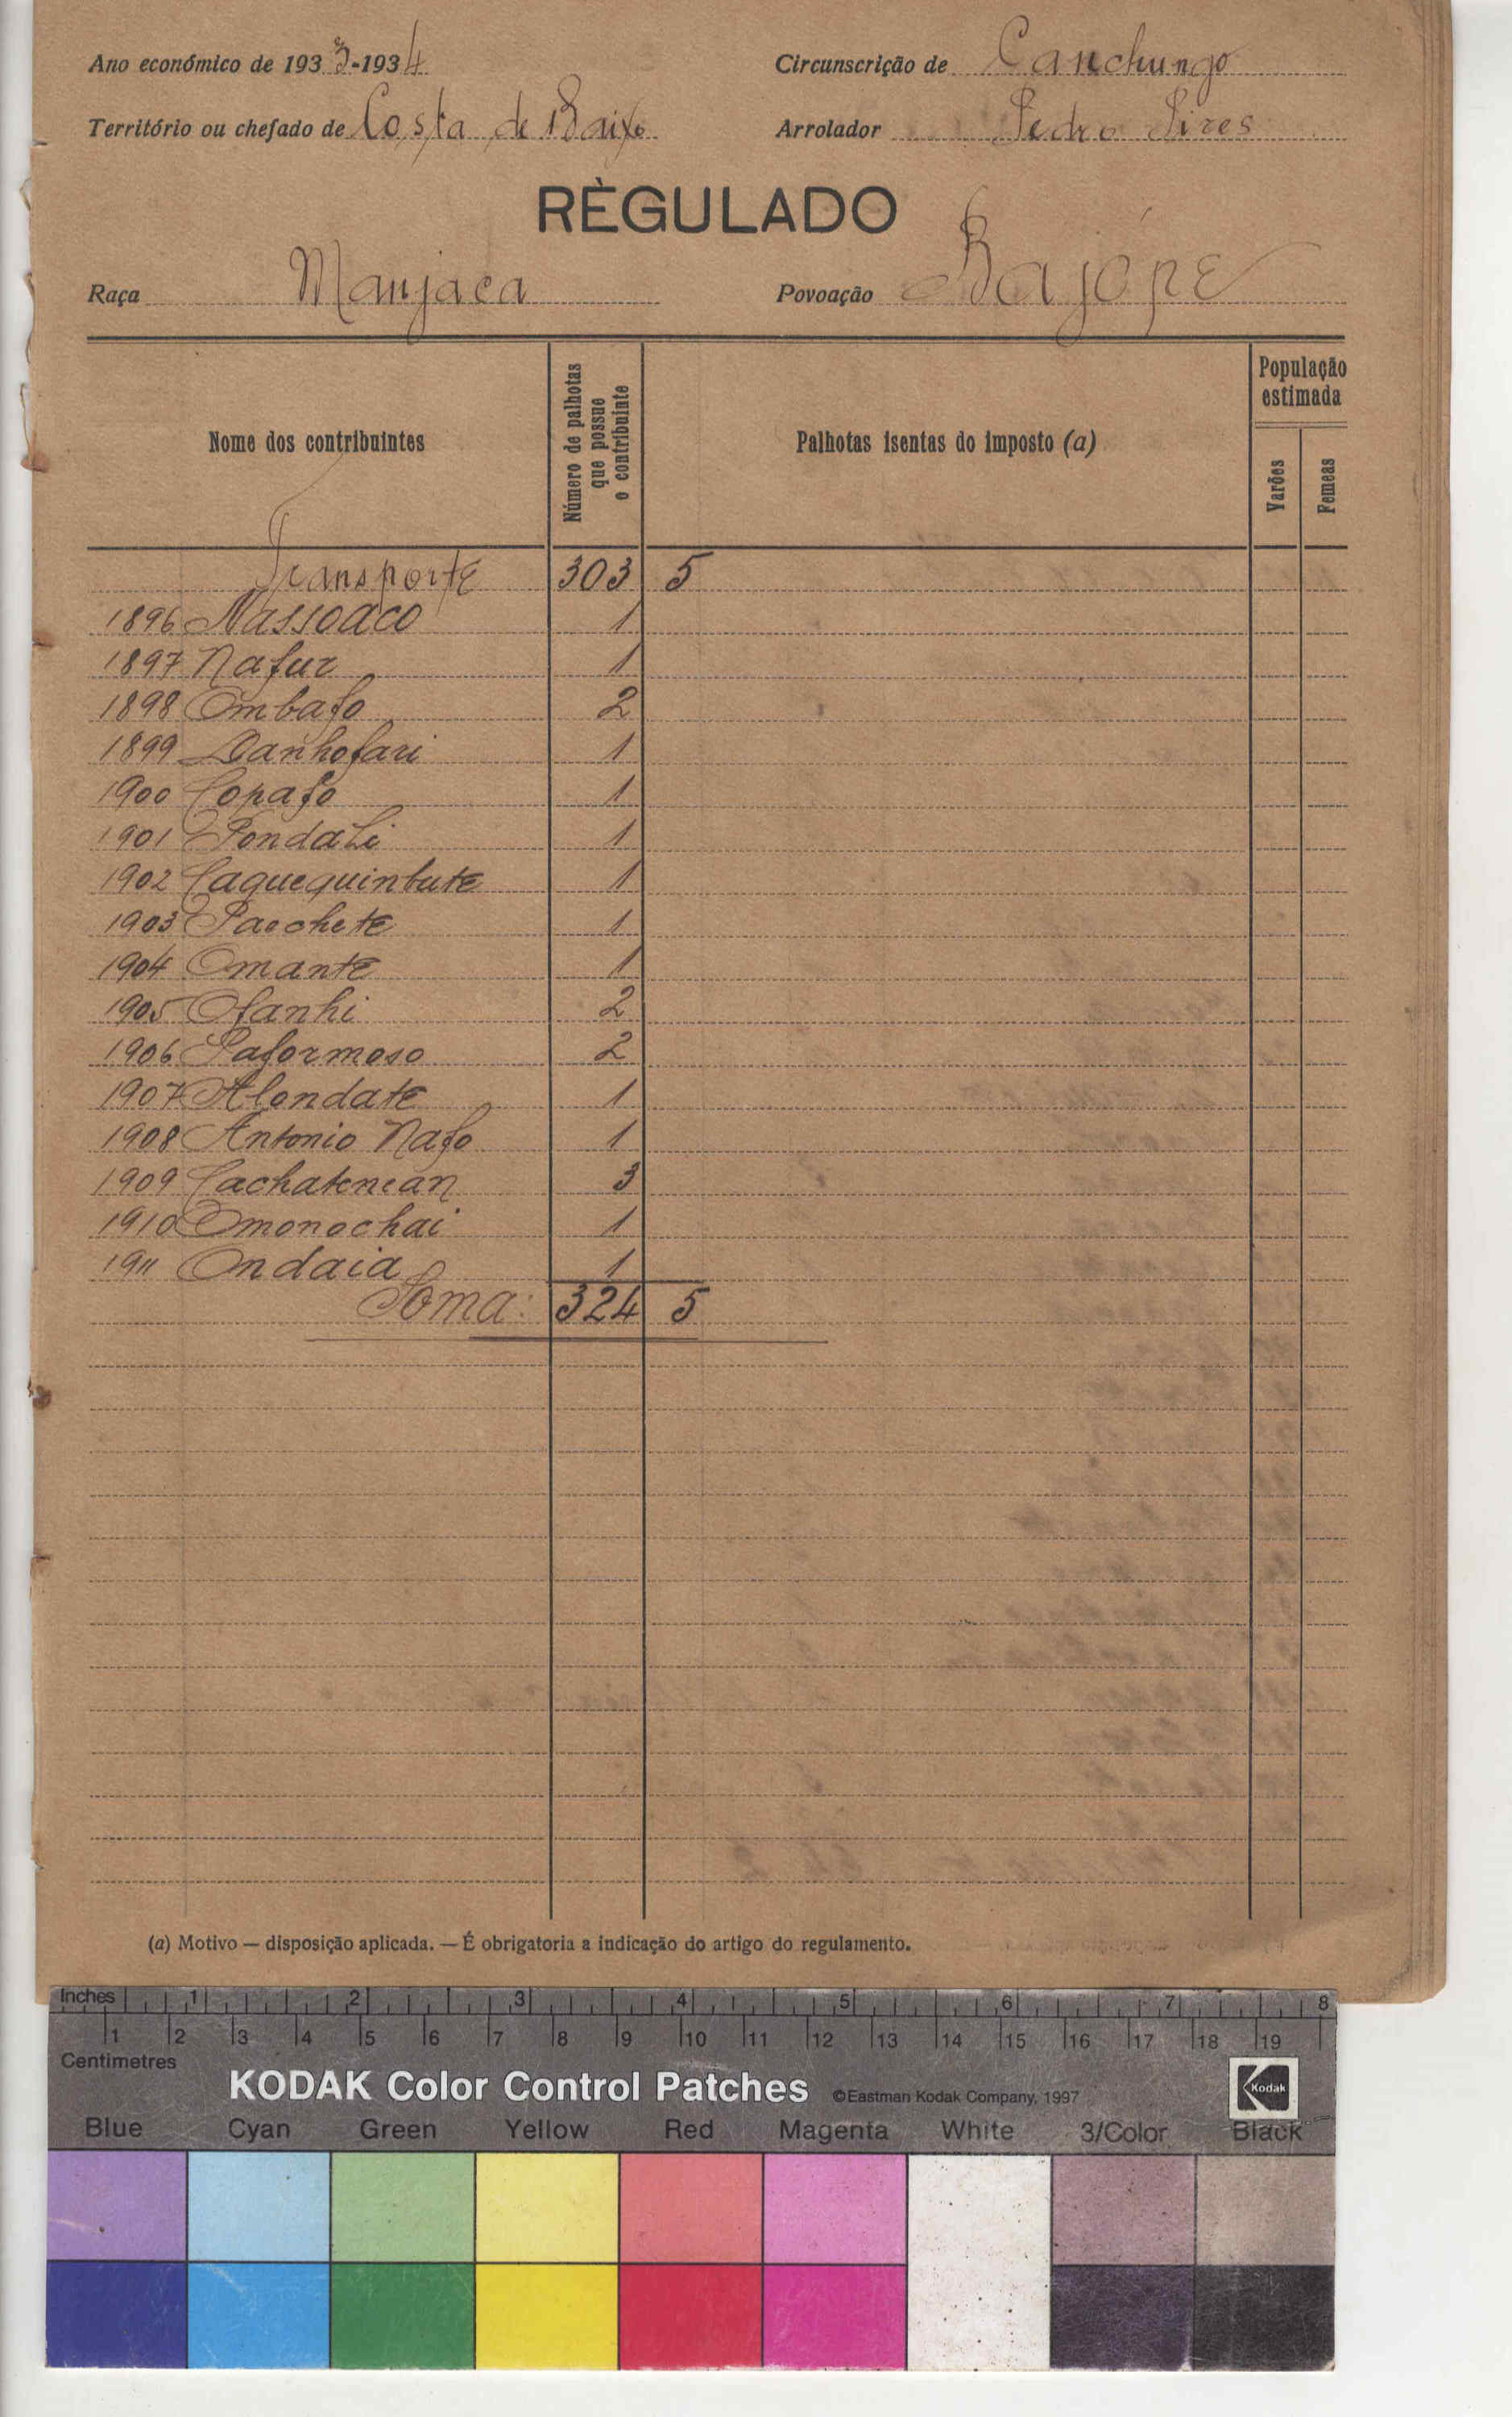 Ano económico de 1933-1934 Circunscrição de Canchungo
Território ou chefado de Costa de Baixo Arrolador Pedro Pires
RÈGULADO
Raça Manjaca Povoação Bajope
Nome dos contribuintes Número de palhotas que possue o contribuinte Palhotas isentas do imposto (a) População estimada Varões Femeas
Transporte 303 5
1896 Nassoaco 1
1897 Nafur 1
1898 Ombafo 2
1899 Danhofari 1
1900 Copafo 1
1901 Pondali 1
1902 Caquequinbute 1
1903 Paochete 1
1904 Omante 1
1905 Ofanhi 2
1906 Paformoso 2
1907 Alondate 1
1908 Antonio Nafo 1
1909 Cachatenean 3
1910 Omonochai 1
1911 Ondaia 1
Soma: 324 5
(a) Motivo — disposição aplicada. — É obrigatoria a indicação do artigo do regulamento.
Inches 1 2 3 4 5 6 7 8
1 2 3 4 5 6 7 8 9 10 11 12 13 14 15 16 17 18 19
Centimetres
KODAK Color Control Patches ©Eastman Kodak Company, 1997 Kodak
Blue Cyan Green Yellow Red Magenta White 3/Color Black